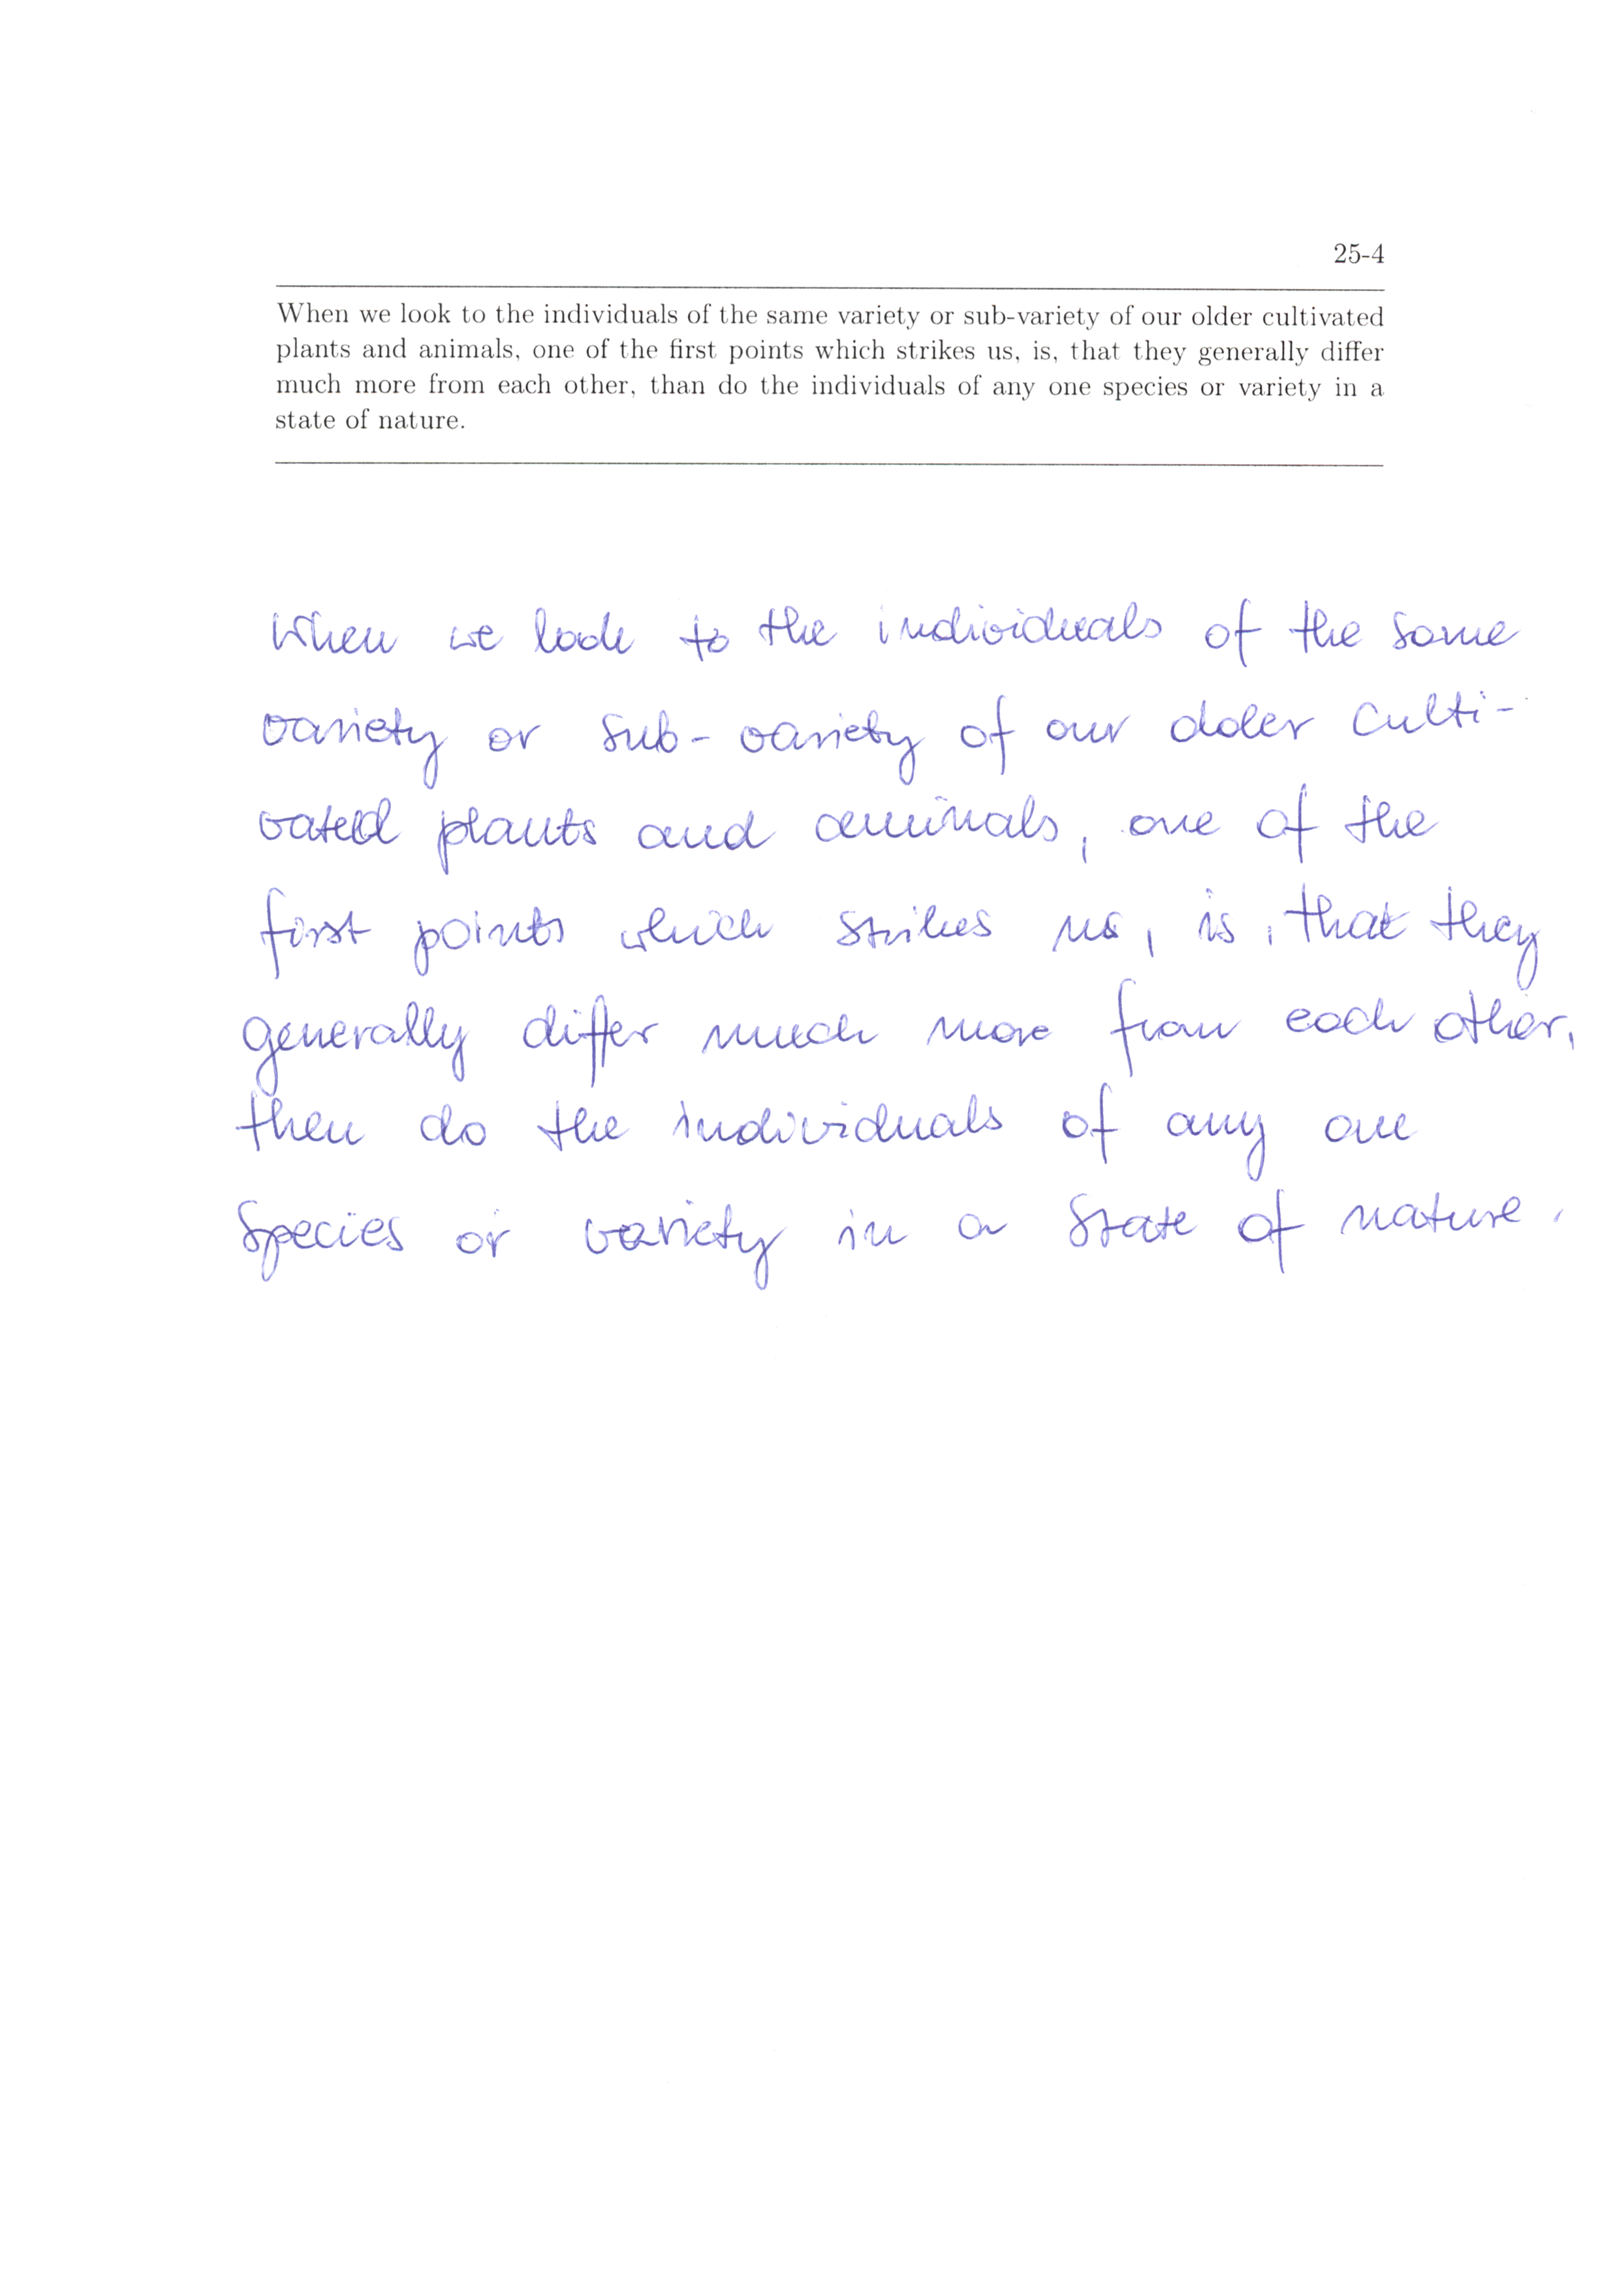 25-4
When we look to the individuals of the same variety or sub-variety of our older cultivated
plants and animals, one of the first points which strikes us, is, that they generally differ
much more from each other, than do the individuals of any one species or variety in a
state of nature.
When we look to the individuals of the same
variety or sub-variety of our older culti-
vated plants and animals, one of the
first points which strikes us, is, that they
generally differ much more from each other,
then do the individuals of any one
species or variety in a state of nature.